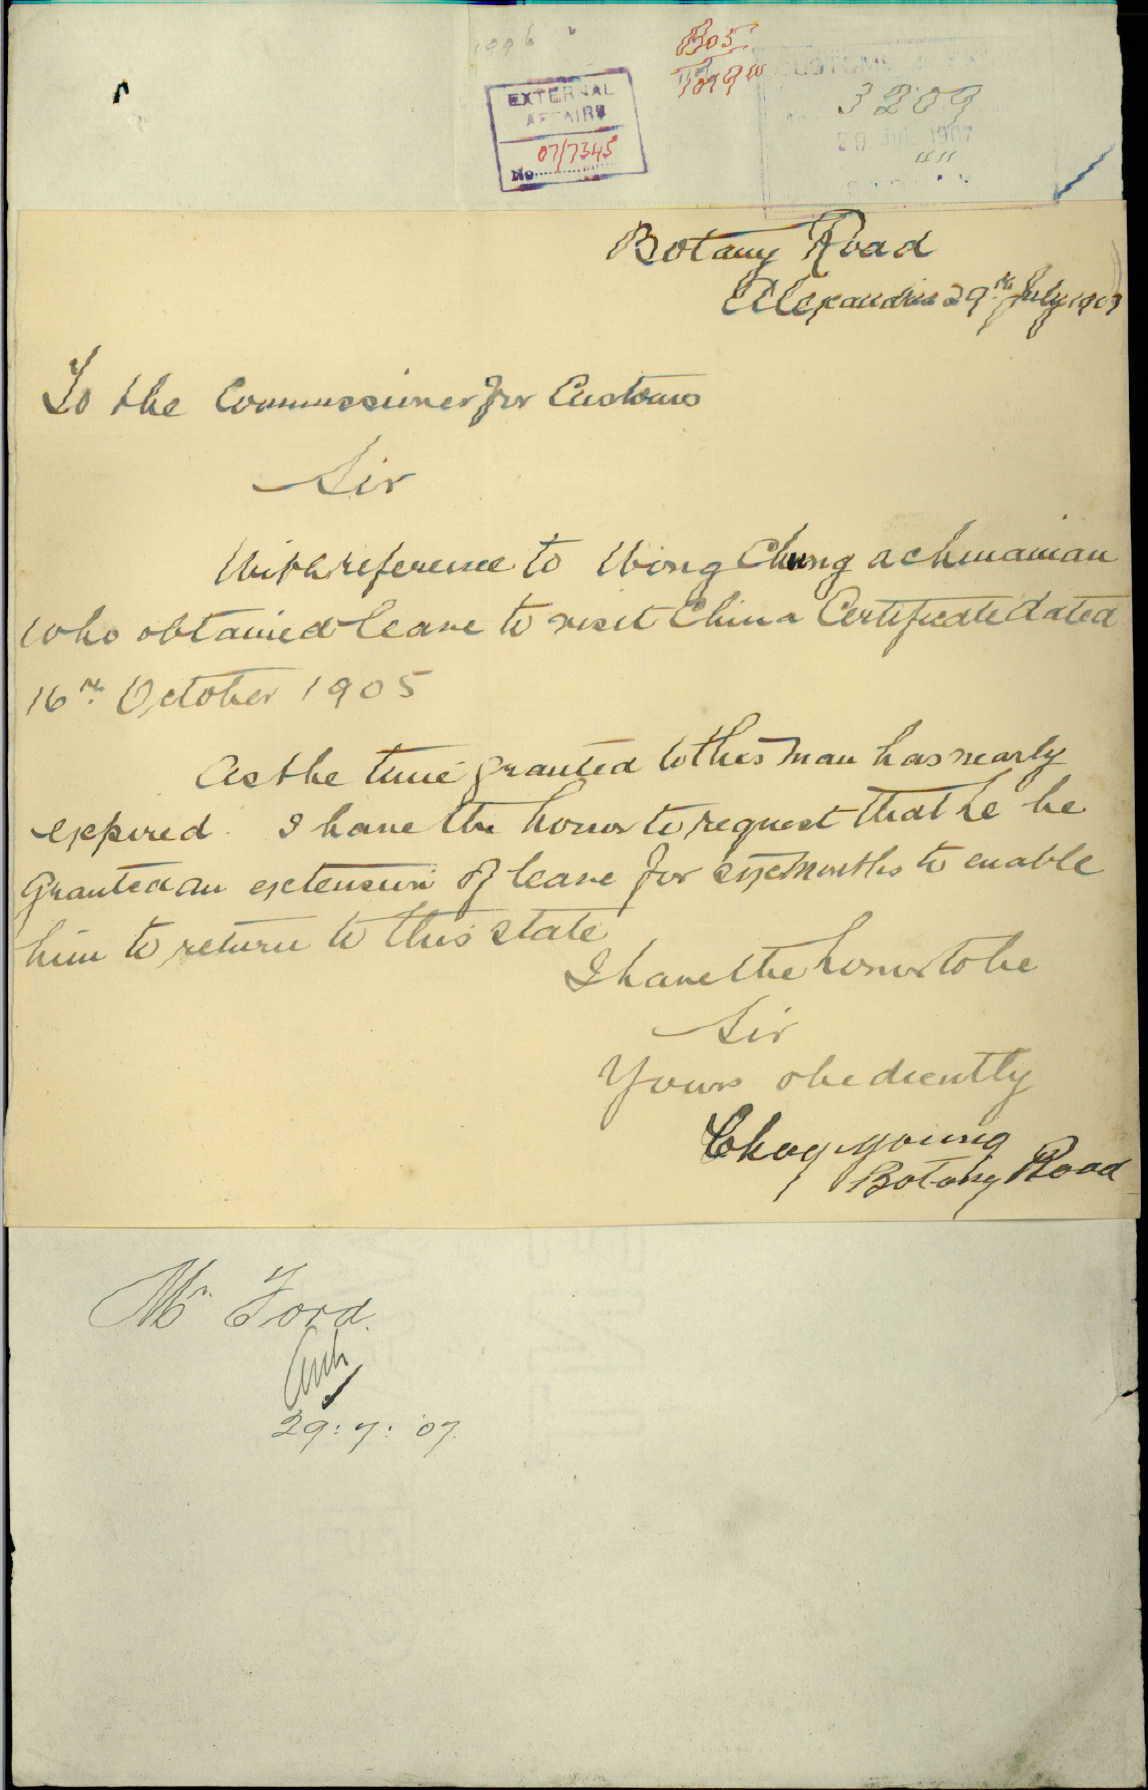 EXTERNAL
AFFAIRS
No 07/7345
3209
Botany Road
Alexandria 29th July 1907
To the Commissioner for Customs
Sir
With reference to Wong Chung a chinaman
who obtained leave to visit China Certificate dated
16th October 1905
As the time granted to this man has nearly
expired. I have the honor to request that he be
granted an extension of leave for six months to enable
him to return to this state
I have the honor to be
Sir
Yours obediently
Young
Botany Road
Mr Ford.
29.7.07.